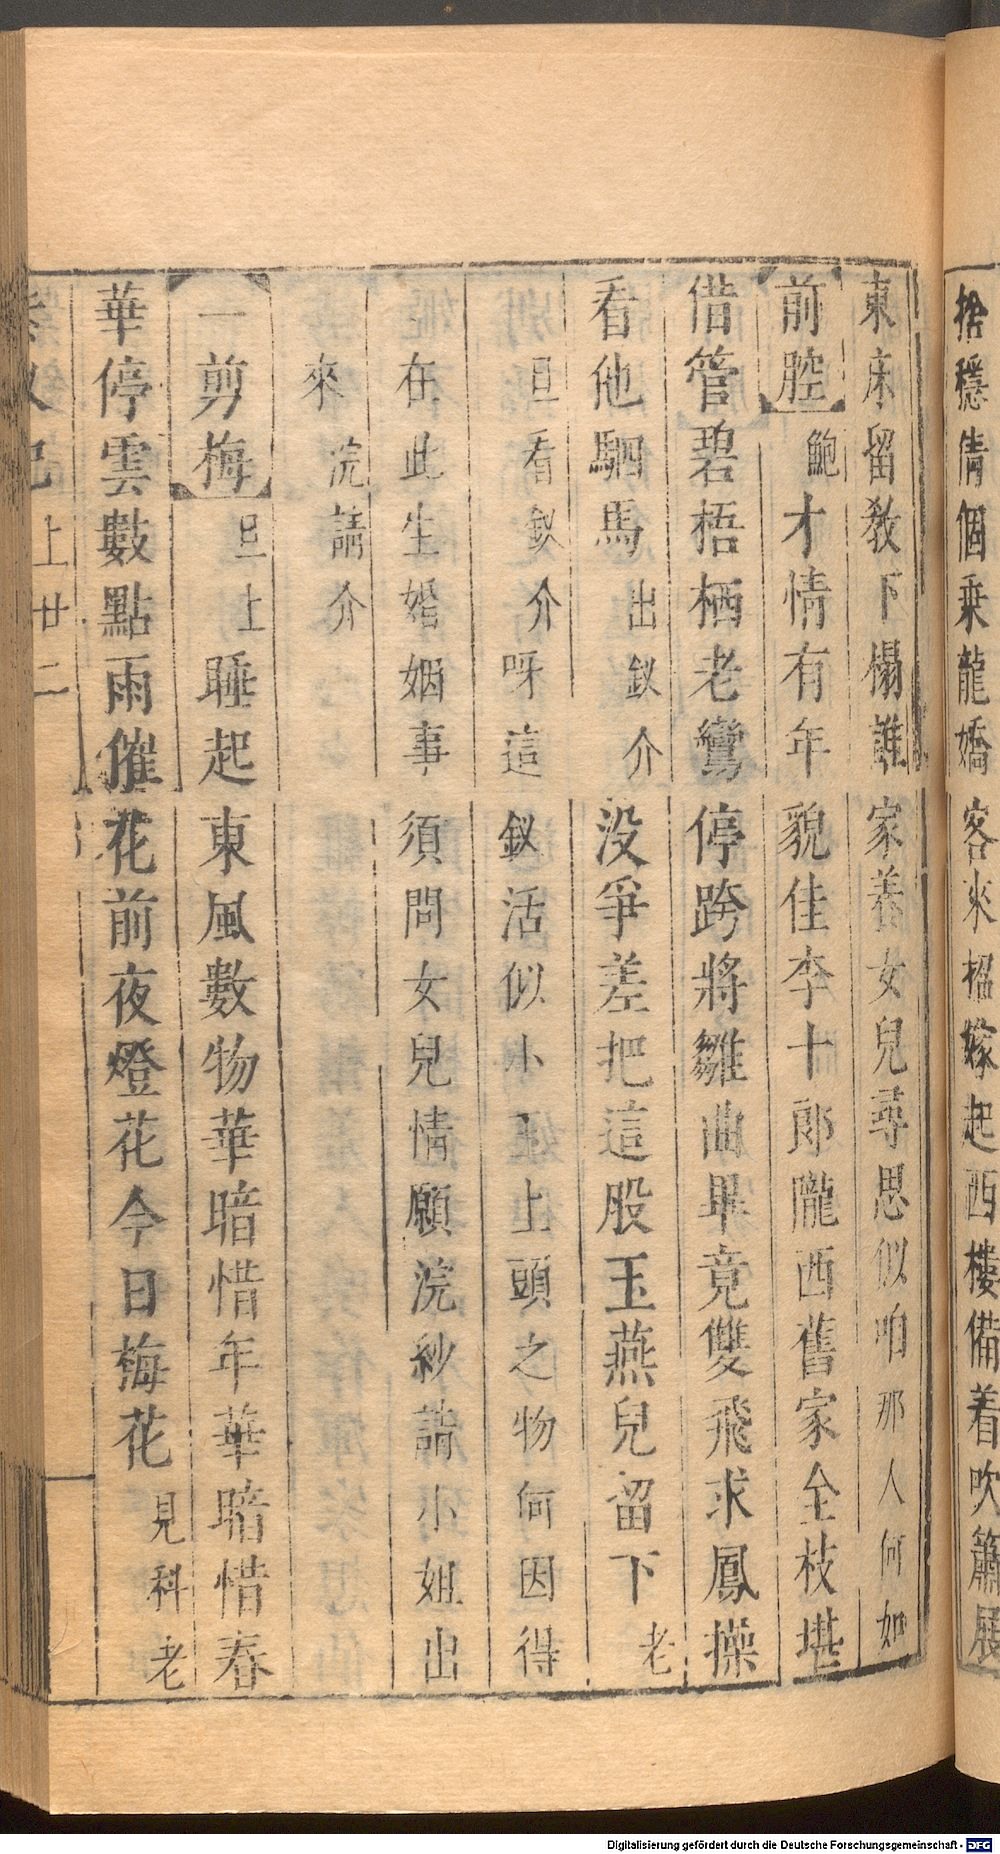 捨穩倩個乘龍嬌客來招嫁起西樓備着吹簫展
東床留教下榻誰家養女兒尋思似咱那人何如
前腔鮑才情有年貌佳李十郎隴西舊家全枝堪
借管碧梧栖老鸞停跨將雛曲畢竟雙飛求鳳操
看他駟馬出釵介没爭差把這股玉燕兒留下老
旦看釵介呀這釵活似小玉上頭之物何因得
在此生婚姻事須問女兒情願浣紗請小姐出
來浣請介
一剪梅旦上睡起東風數物華暗惜年華暗惜春
華停雲數點雨催花前夜燈花今日梅花見科老
上廿二
Digitalisierung gefördert durch die Deutsche Forschungsgemeinschaft - DFG